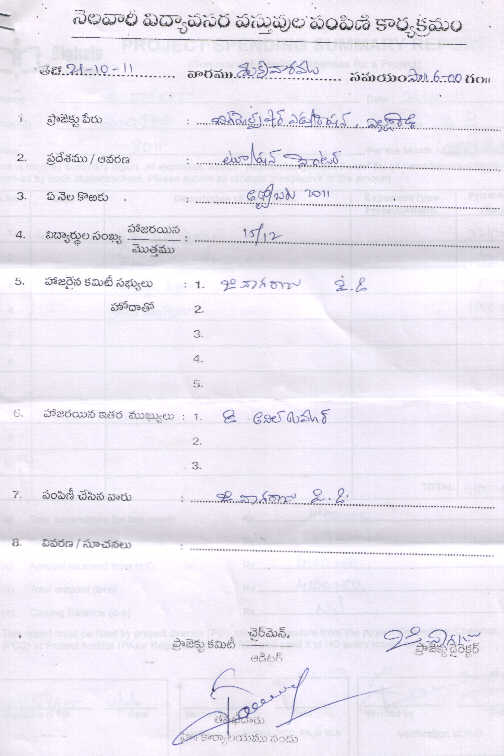 నెలవారీ విద్యావసర వస్తువుల పంపిణి కార్యక్రమం
తేది 21-10-11 వారము శుక్రవారము సమయం సా॥ 6-00 గం॥
1. ప్రాజెక్టు పేరు :
2. ప్రదేశము / ఆవరణ : ట్యూషన్ సెంటర్
3. ఏ నెల కొఱకు : అక్టోబర్ 2011
4. విద్యార్థుల సంఖ్య హాజరయిన / మొత్తము : 15/12
5. హాజరైన కమిటీ సభ్యులు : 1. జి నాగరాజు పి.డి
హోదాతో 2.
3.
4.
5.
6. హాజరయిన ఇతర ముఖ్యులు : 1.
2.
3.
7. పంపిణీ చేసిన వారు : జి నాగరాజు పి.డి.
8. వివరణ / సూచనలు :
ప్రాజెక్టు కమిటీ ఛైర్మెన్. / ఆడిటర్
ప్రాజెక్టు డైరెక్టర్
కార్యాలయము నందు